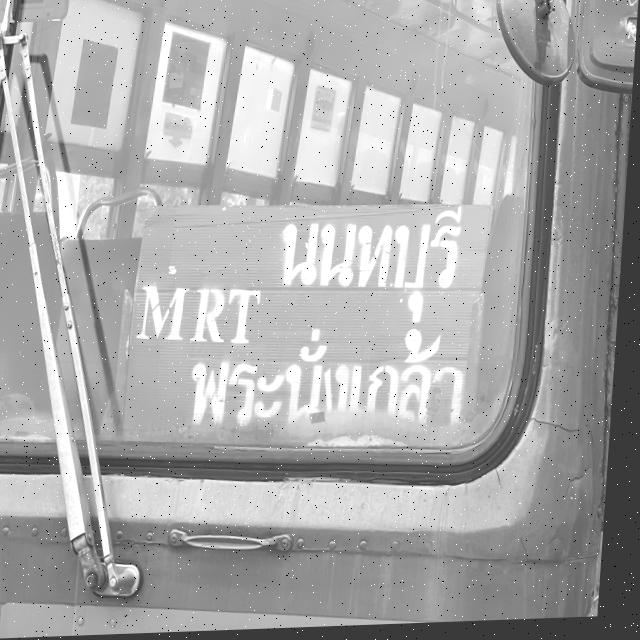 นนทบุรี
MRT
พระนั่งเกล้า